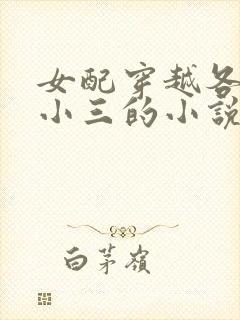 女配穿越各
小三的小說
白茅嶺